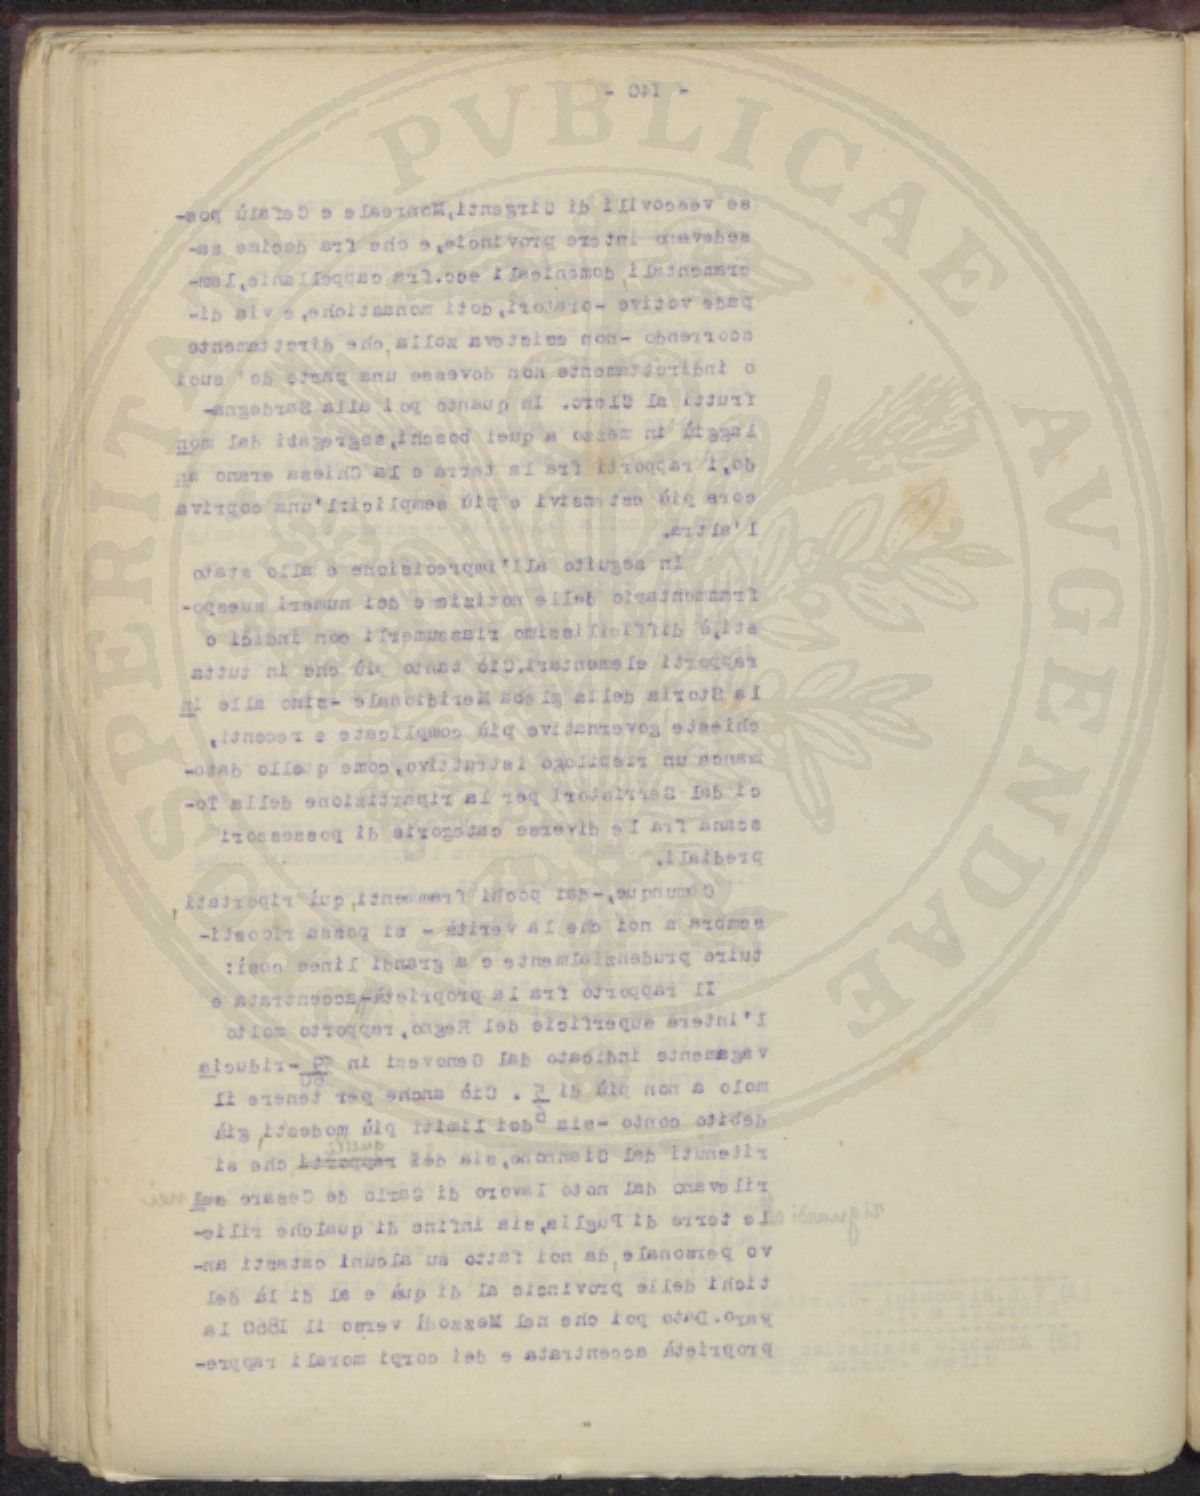 - 140 -
se vescovili di Girgenti,Monreale e Cefalù pos-
sedevano intere provincie,e che fra decime sa-
cramentali domenicali ecc.fra cappellanie,lam-
pade votive -oratori,doti monastiche,e via di-
scorrendo -non esisteva zolla,che direttamente
o indirettamente non dovesse una parte de' suoi
frutti al Clero. In quanto poi alla Sardegna-
laggiù in mezzo a quei boschi,segregati dal mon
do,i rapporti fra la terra e la Chiesa erano an
cora più estensivi e più semplici:l'una copriva
l'altra.
In seguito all'imprecisione e allo stato
frammentario delle notizie e dei numeri suespo-
sti,è difficilissimo riassumerli con indici o
rapporti elementari.Ciò tanto più che in tutta
la Storia della gleba Meridionale -simo alle In
chieste governative più complicate e recenti,
manca un riepilogo istruttivo,come quello dato-
ci dal Serristori per la ripartizione della To-
scana fra le diverse categorie di possessori
prediali.
Comunque,-dai pochi frammenti,quì riportati,
sembra a noi che la verità - si possa ricosti-
tuire prudenzialmente e a grandi linee così:
Il rapporto fra la proprietà-accentrata e
l'intera superficie del Regno,rapporto molto
vagamente indicato dal Genovesi in 59/60 -riducia
molo a non più di 5/6 . Ciò anche per tenere il
debito conto -sia dei limiti più modesti,già
ritenuti dal Giannone,sia dei rapporti che si
rilevano dal noto lavoro di Carlo de Cesare sul
le terre di Puglia,sia infine di qualche rilie-
vo personale,da noi fatto su alcuni catasti an-
tichi delle provincie al di quà e al di là del
Faro.Dato poi che nel Mezzodì verso il 1860 la
proprietà accentrata e dei corpi morali rappre-
SPERITAE PVBLICAE AVGENDAE